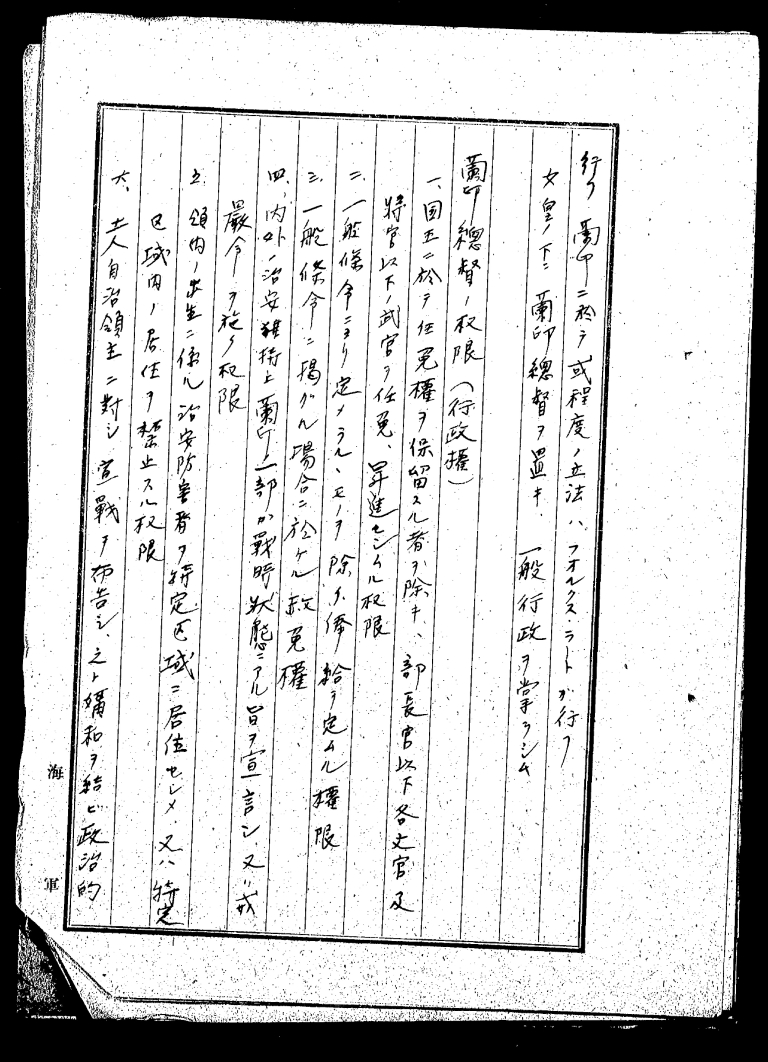 行フ 蘭印ニ於テ或程度ノ立法ハ、フオルクス・ラートガ行フ
女皇ノ下ニ蘭印總督ヲ置キ、一般行政ヲ掌ラシム
蘭印總督ノ权限(行政權)
一、国王ニ於テ任免權ヲ保留スル者ヲ除キ、部長官以下各文官及
将官以下ノ武官ヲ任免、昇進セシムル权限
二、一般條令ニヨリ定メラルヽモノヲ除ク俸給ヲ定ムル權限
三、一般條令ニ掲グル場合ニ於ケル赦免權
四、内外ノ治安維持上蘭印ノ一部ガ戰時狀態ニアル旨ヲ宣言シ、又ハ戒
嚴令ヲ施ク权限
五、領内ノ出生ニ係ル治安防害者ヲ特定区域ニ居住セシメ又ハ特定
区域内ノ居住ヲ禁止スル权限
六、土人自治領主ニ對シ宣戰ヲ布告シ、之ト媾和ヲ結ビ政治的
海軍